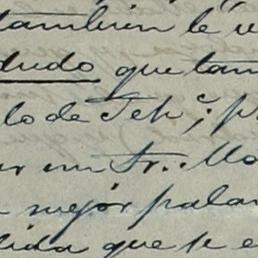 también le v
dudo que tam
lo de Feb.°; p
ar un Fr.. Mo
mejor pala
lida que se e